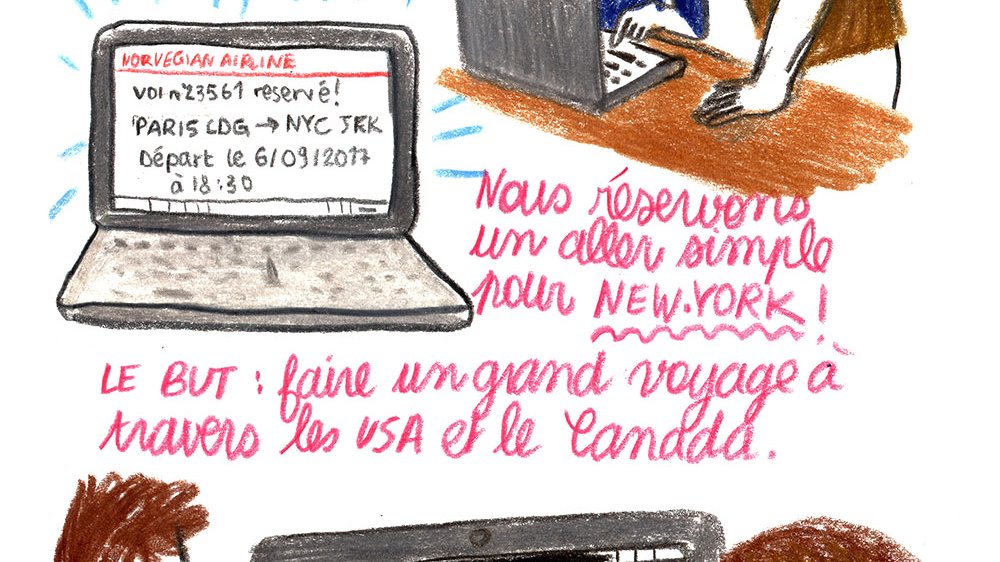 NORVEGIAN AIRLINE
VOl n°23561 reservé!
PARIS CDG → NYC JFK
Départ le 6/09/2017
à 18:30
Nous réservons
un aller simple
pour NEW-YORK !
LE BUT : faire un grand voyage à
travers les USA et le Canada.